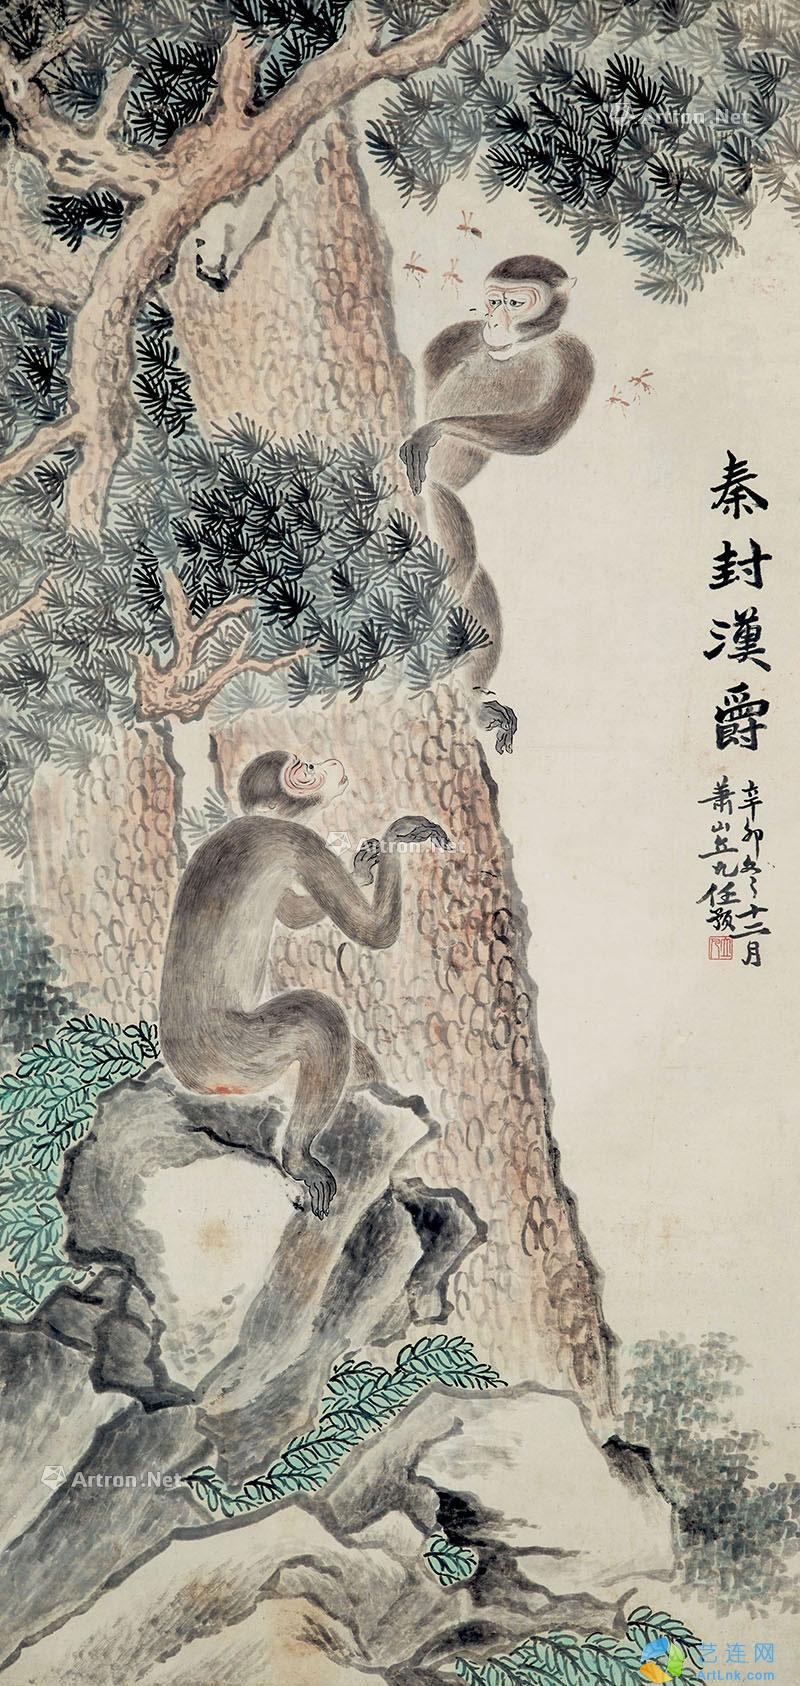 秦封漢爵
辛卯冬之十二月
蕭山
任頤
Artron.Net
Artron.Net
Artron.Net
艺连网
ArtLnk.com